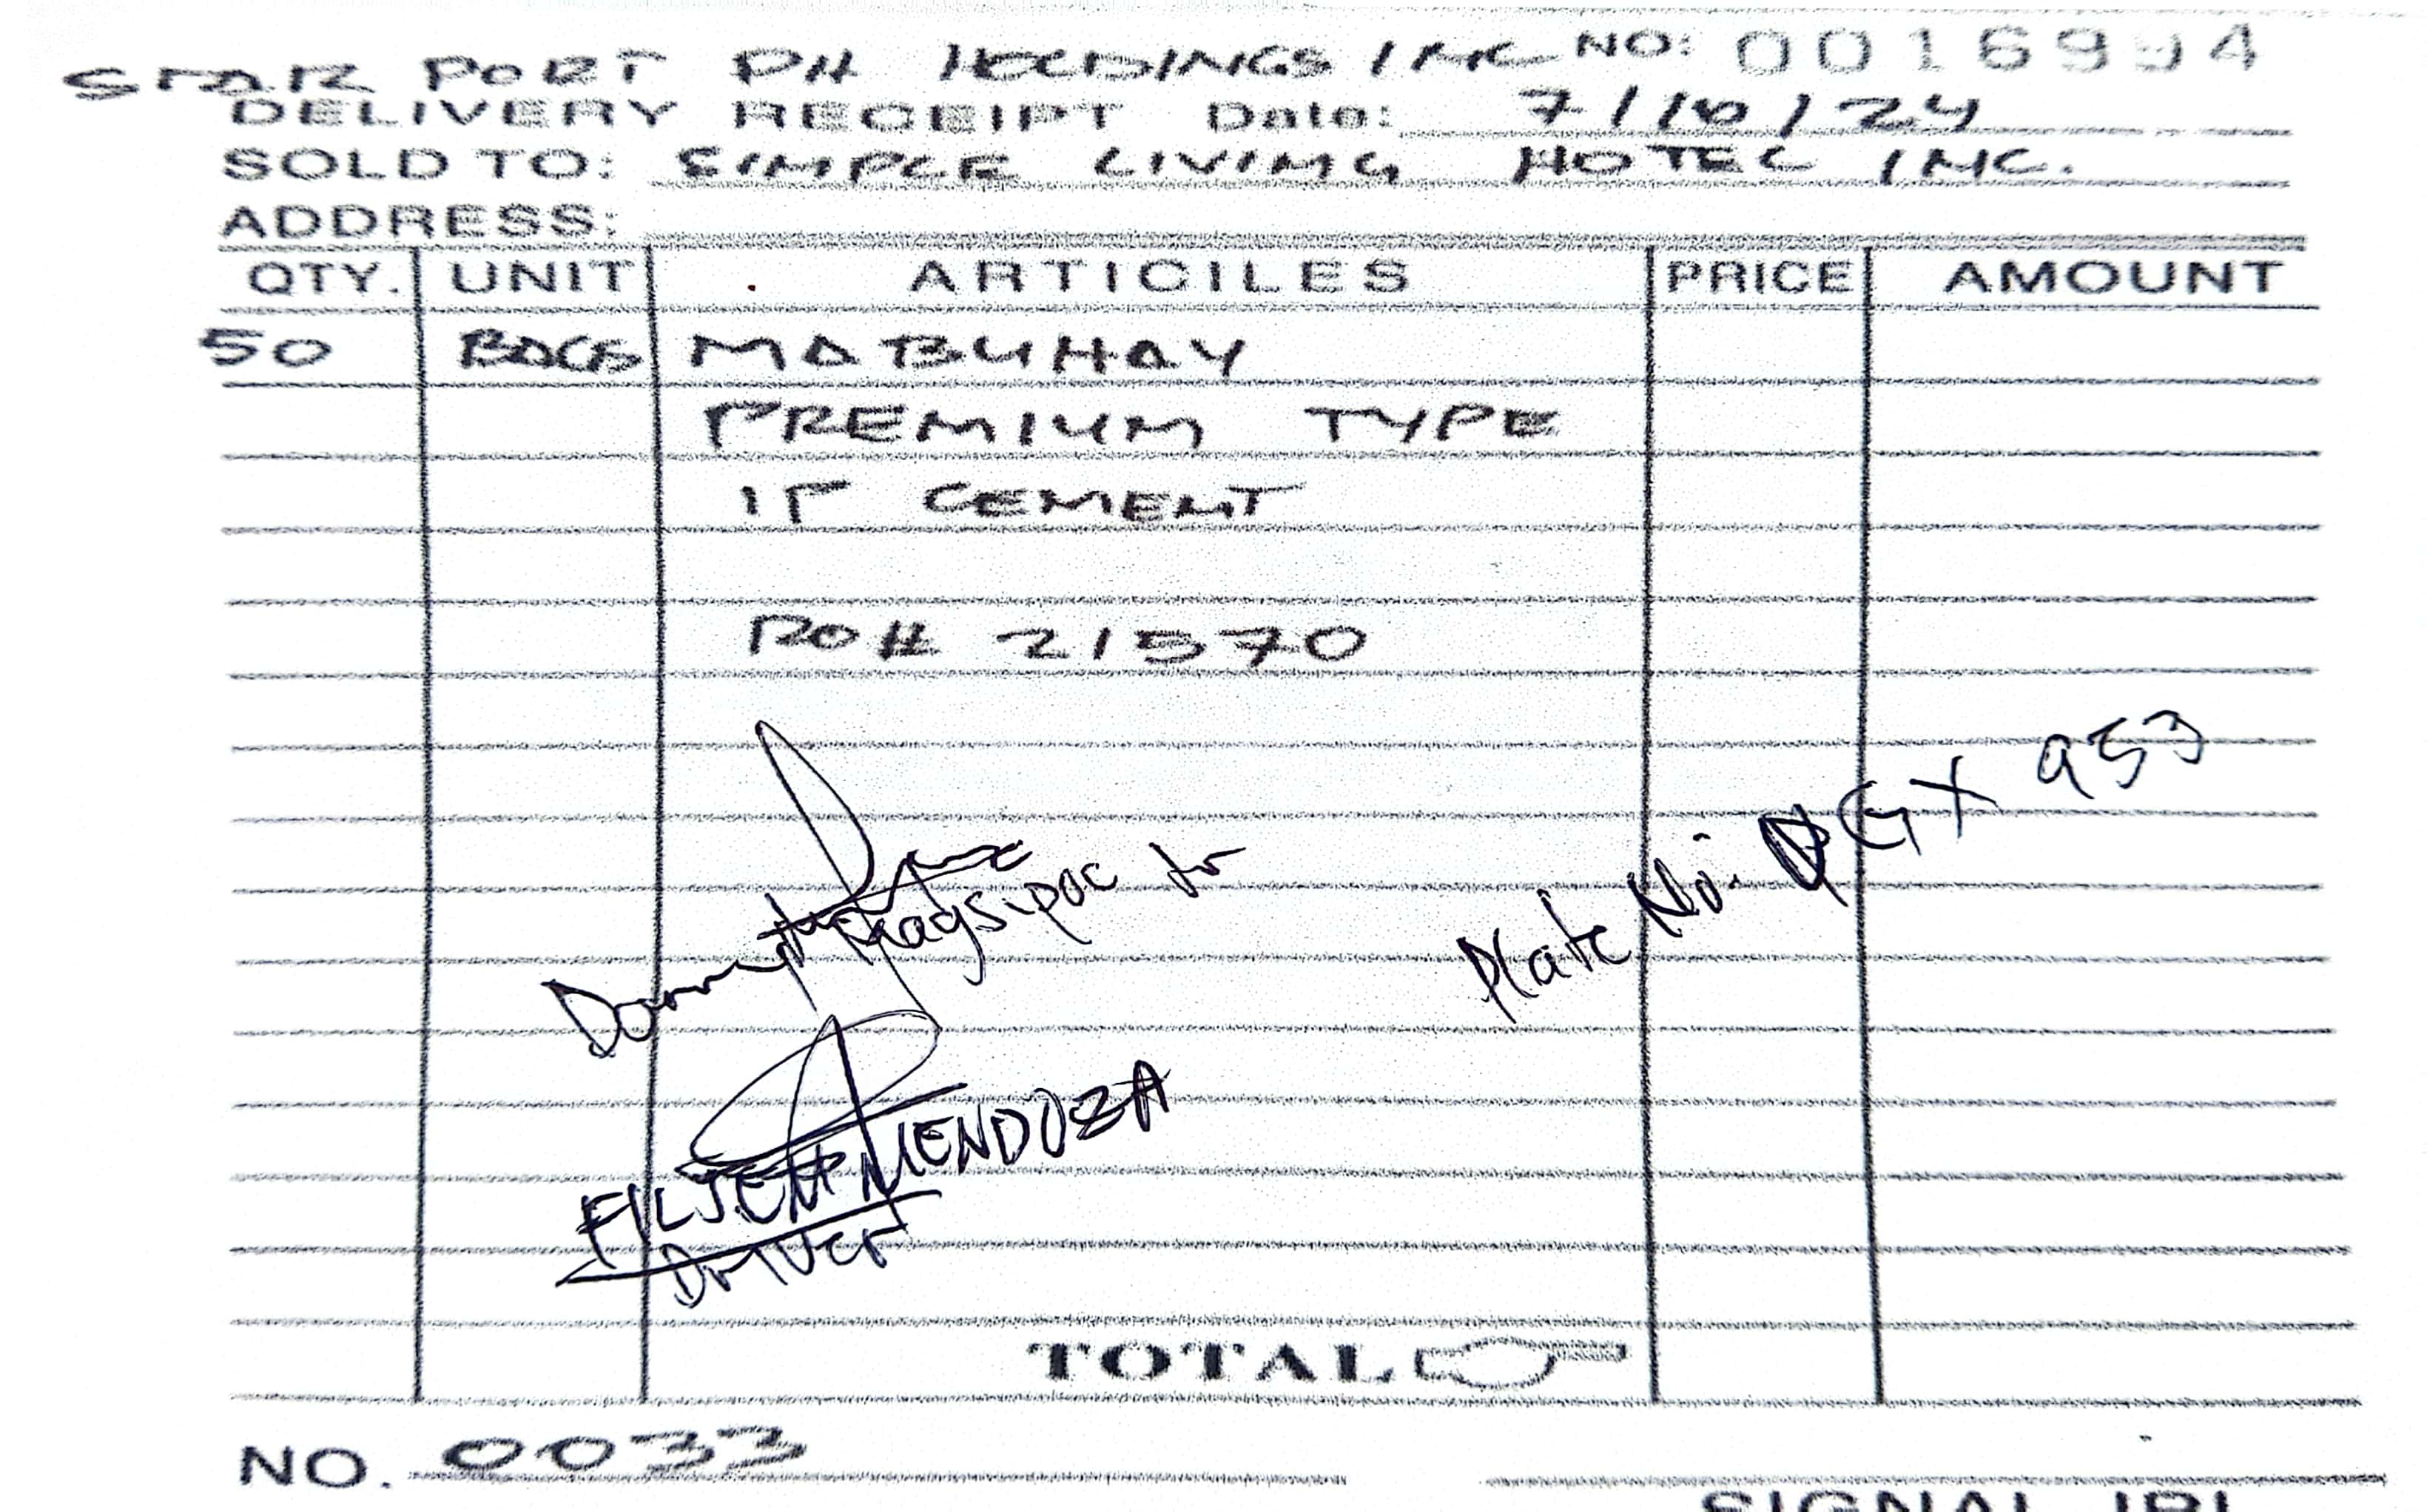 STAR PORT PH HOLDINGS INC NO: 0016994
DELIVERY RECEIPT Date: 7/16/24
SOLD TO: SIMPLE LIVING HOTEL INC.
ADDRESS:
QTY. UNIT ARTICILES PRICE AMOUNT
50 BAGS MABUHAY
PREMIUM TYPE
1P CEMENT
PO# 21570
Magsipoc Jr
Plate No: NGX 953
MENDOZA
Driver
TOTAL
NO. 0033